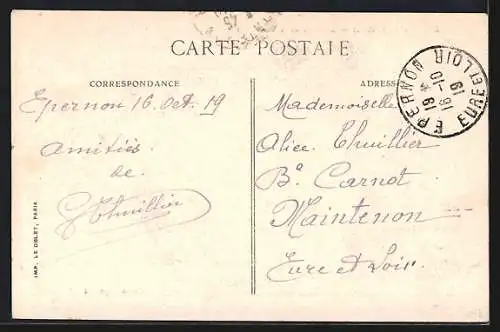 CARTE POSTALE
CORRESPONDANCE
Epernon 16 Oct. 19
Amitiés
de
Thuillier
ADRESSE
Mademoiselle
Alice Thuillier
Bd Carnot
Maintenon
Eure et Loir
EPERNON
19
16 -10
19
EURE ET LOIR
IMP. LE DELEY, PARIS